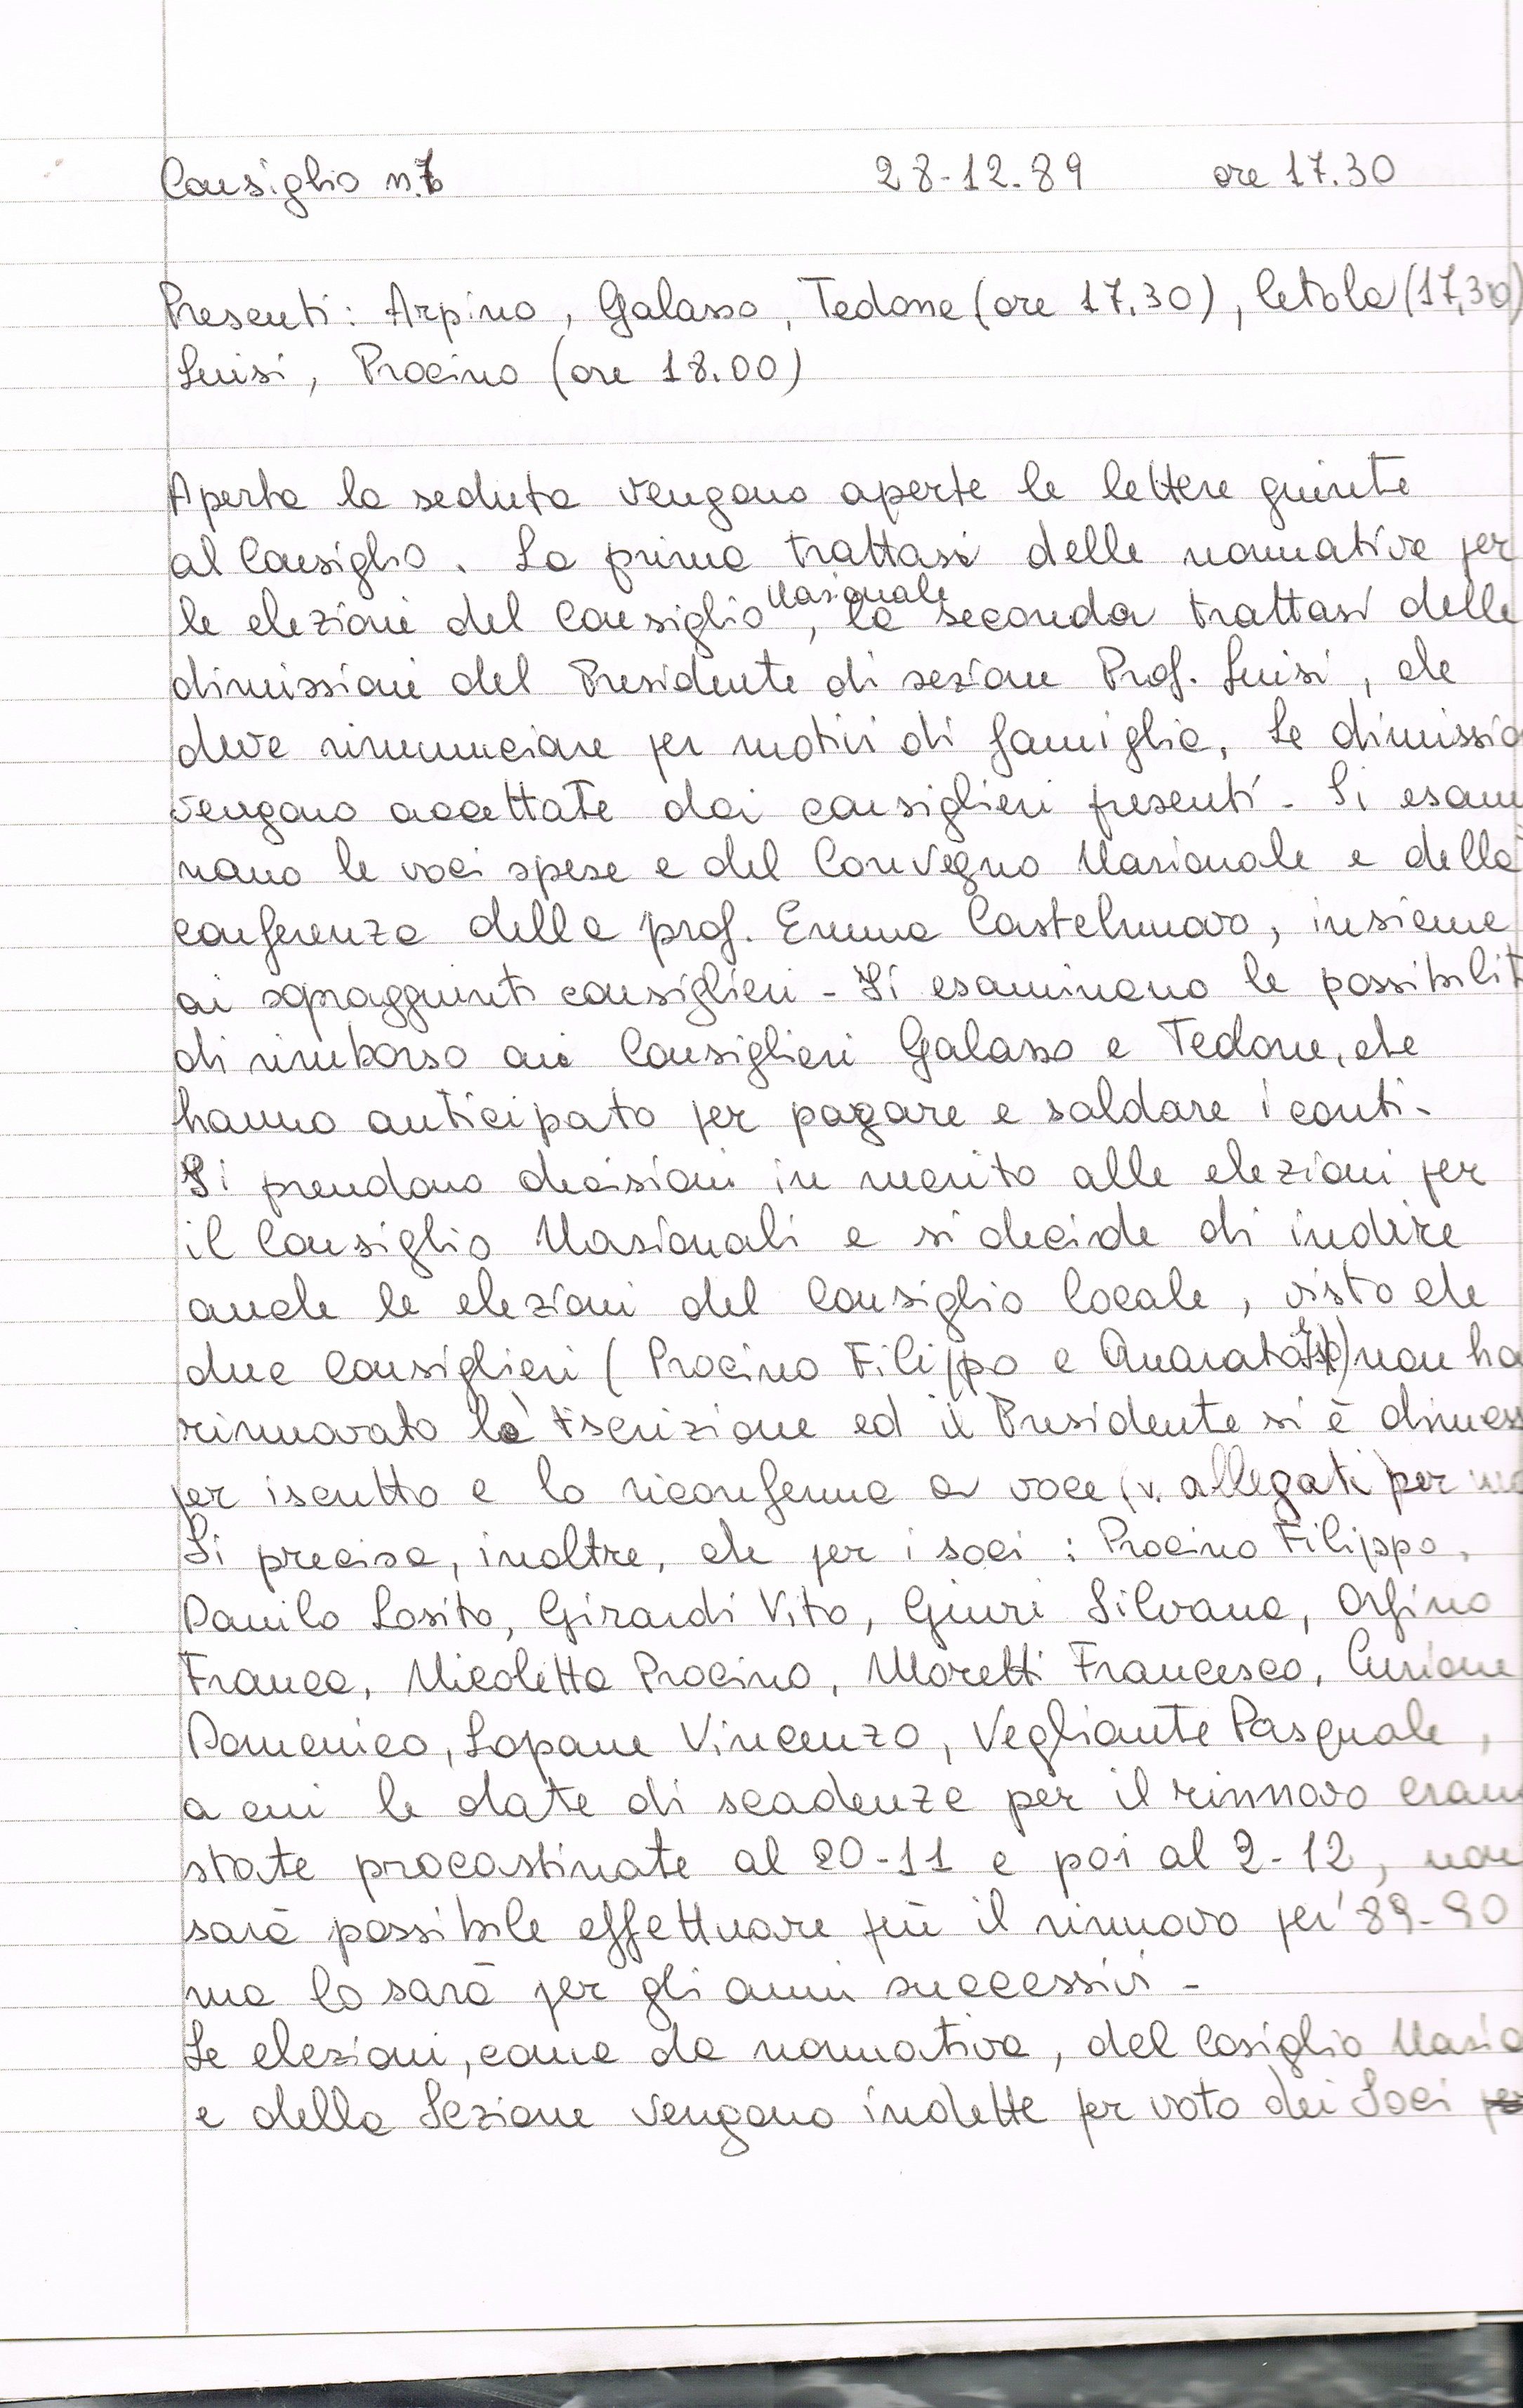 Consiglio n. 28-12.89 ore 17.30
Presenti: Arpino, Galasso, Tedone (ore 17.30), Cetola (17,30)
Luisi, Procino (ore 18.00)
Aperta la seduta vengono aperte le lettere giunte
al Consiglio. La prima trattasi delle normative per
le elezioni del Consiglio Nazionale, la seconda trattasi delle
dimissioni del Presidente di sezione Prof. Luisi, che
deve rinunciare per motivi di famiglia. Le dimissio
vengono accettate dai consiglieri presenti - Si esami
nano le voci spese e del Convegno Nazionale e della
conferenza della prof. Emma Castelnuovo, insieme
ai sopraggiunti consiglieri - Si esaminano le possibilit
di rimborso ai Consiglieri Galasso e Tedone, che
hanno anticipato per pagare e saldare i conti -
Si prendono decisioni in merito alle elezioni per
il Consiglio Nazionali e si decide di indire
anche le elezioni del Consiglio locale, visto che
due Consiglieri (Procino Filippo e Quarato) non ha
rinnovato la iscrizione ed il Presidente si è dimess
per iscritto e lo riconferma a voce (v. allegati) per
Si precisa, inoltre, che per i soci: Procino Filippo,
Danilo Losito, Girardi Vito, Giuri Silvana, Orfino
Franca, Nicoletta Procino, Moretti Francesco, Curione
Domenico, Lopane Vincenzo, Vegliante Pasquale,
a cui le date di scadenze per il rinnovo eran
state procastinate al 20-11 e poi al 2-12, non
sarà possibile effettuare più il rinnovo per '89-90
ma lo sarà per gli anni successivi -
Le elezioni, come da normativa, del Cosiglio Nazio
e della Sezione vengono indette per voto dei Soci